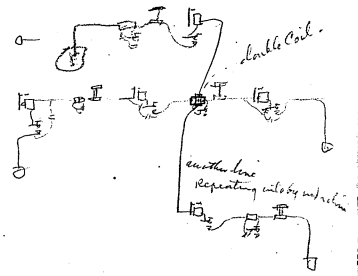 double Coil.
another line
repeating into by